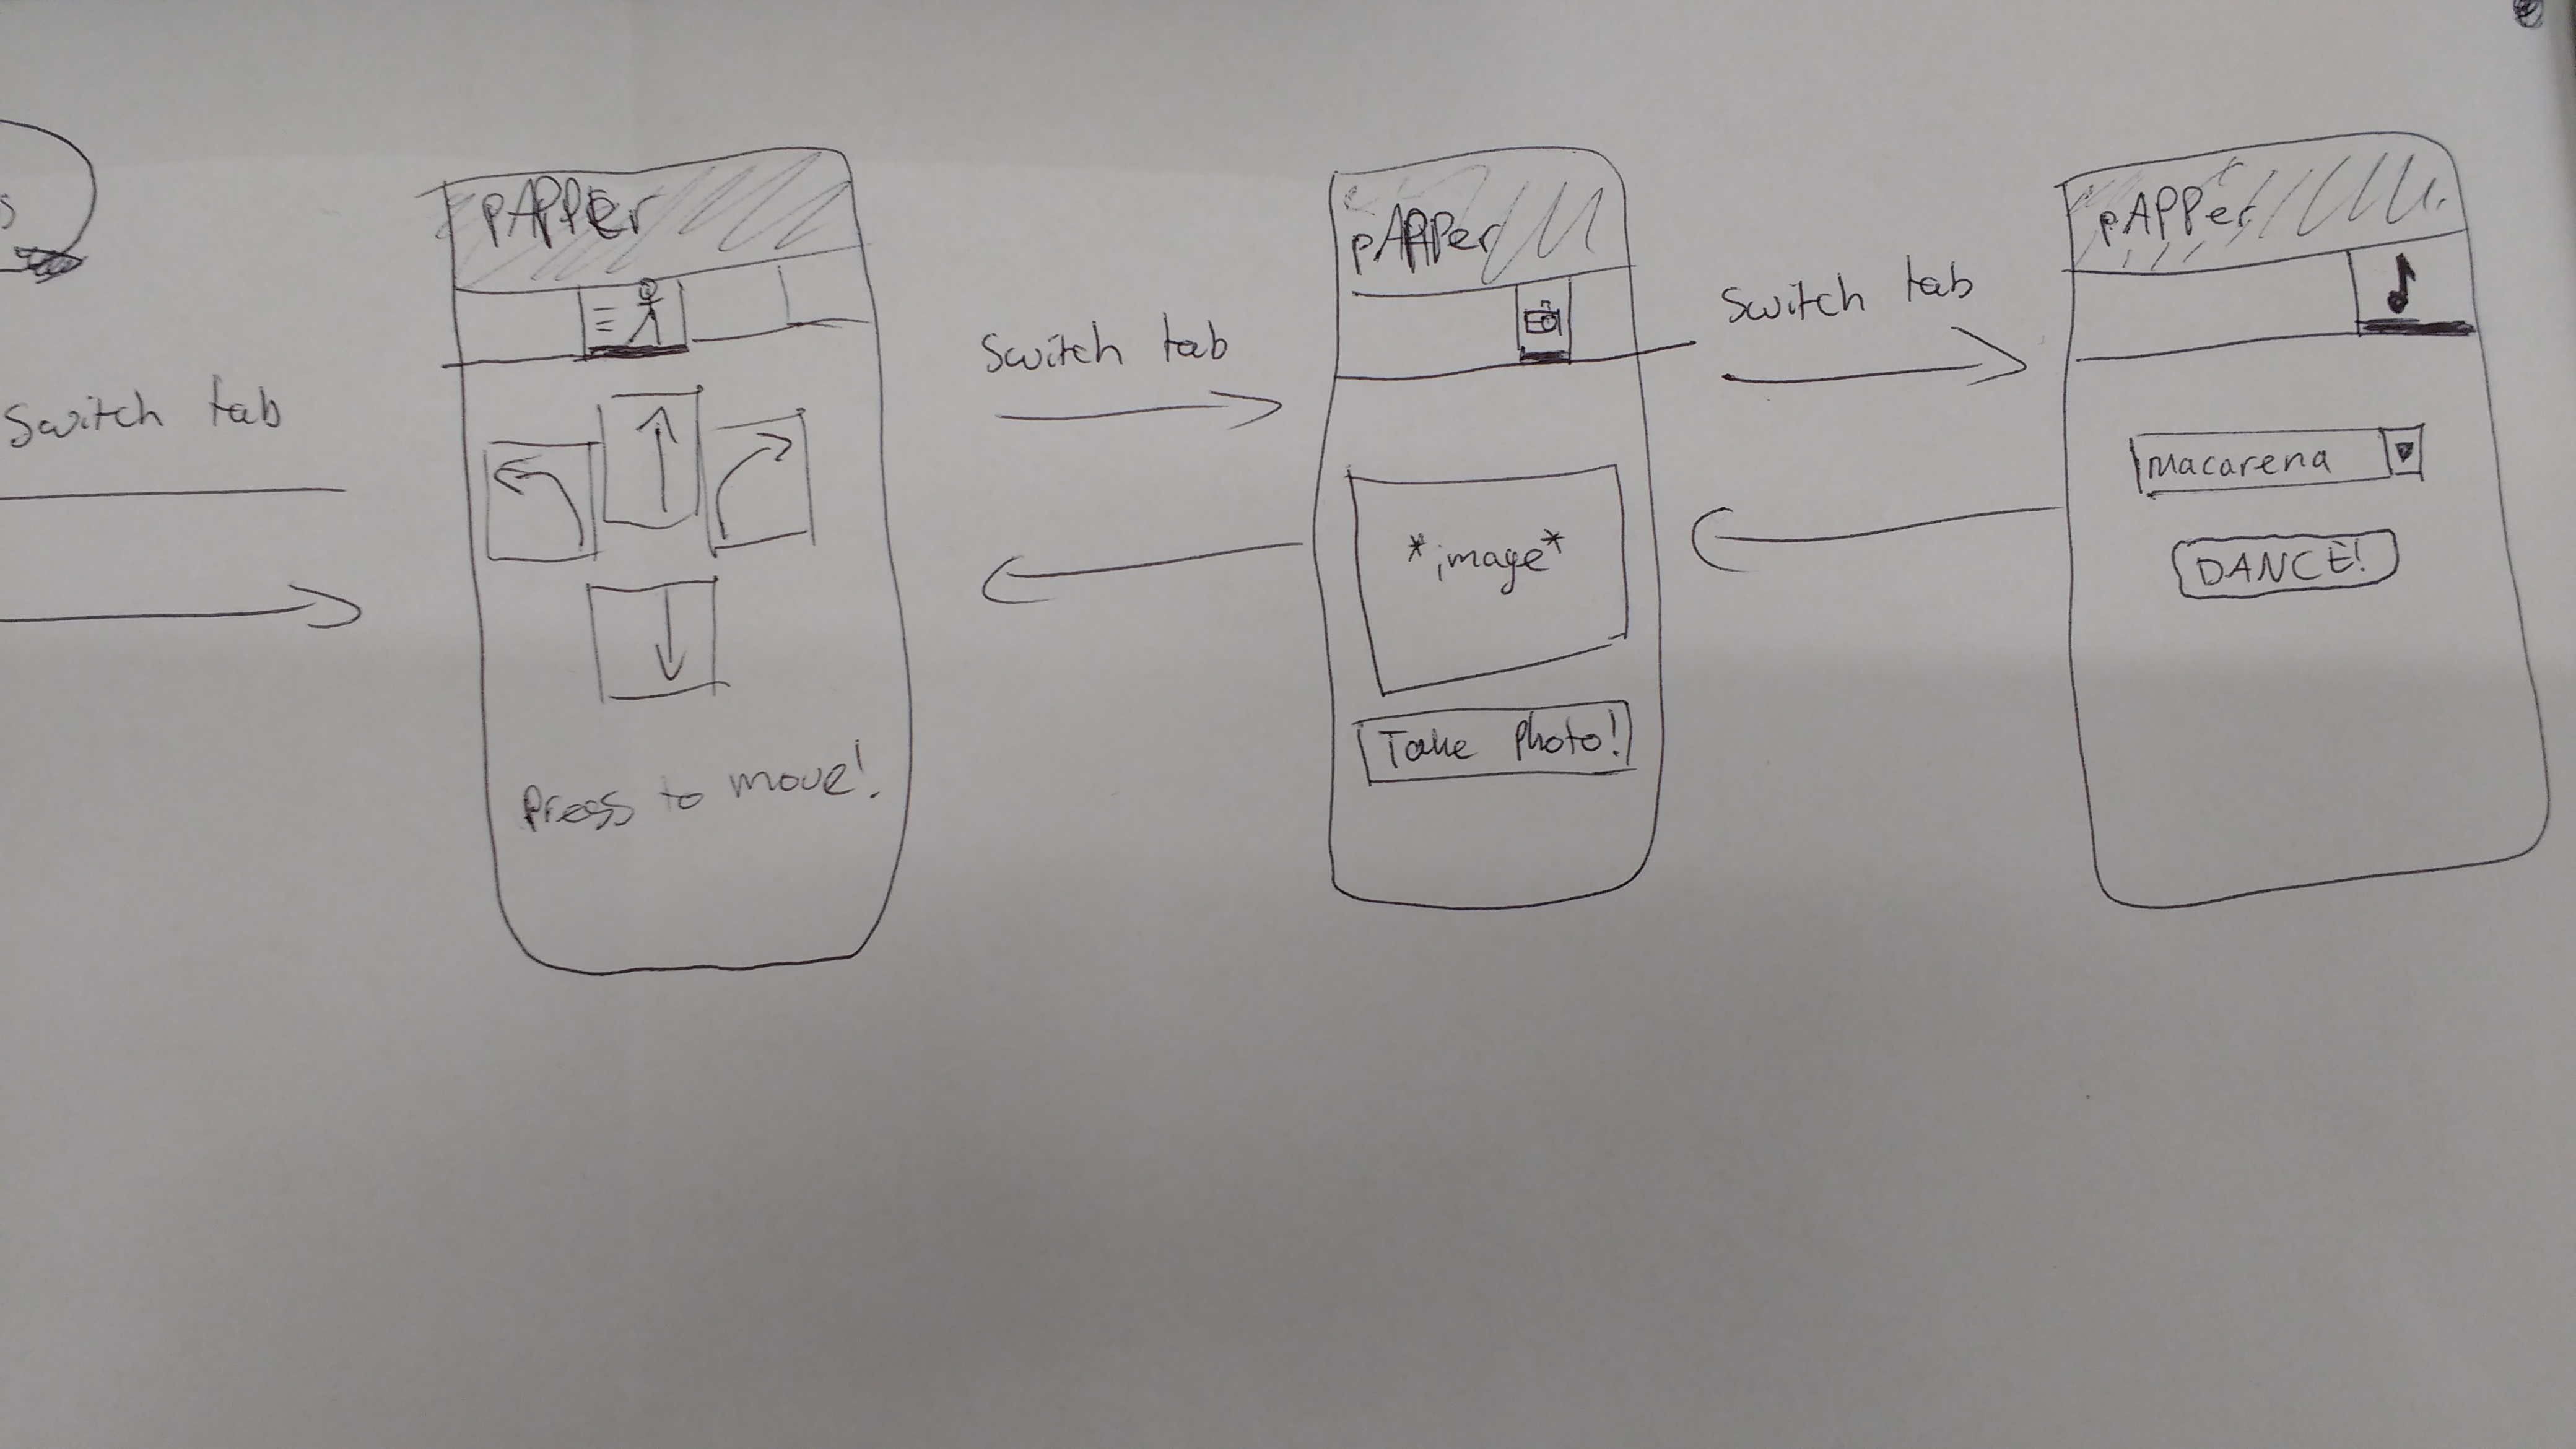 s
Switch tab
pAPPer
Press to move!
Switch tab
pAPPer
*image*
Take Photo!
Switch tab
pAPPer
Macarena
DANCE!